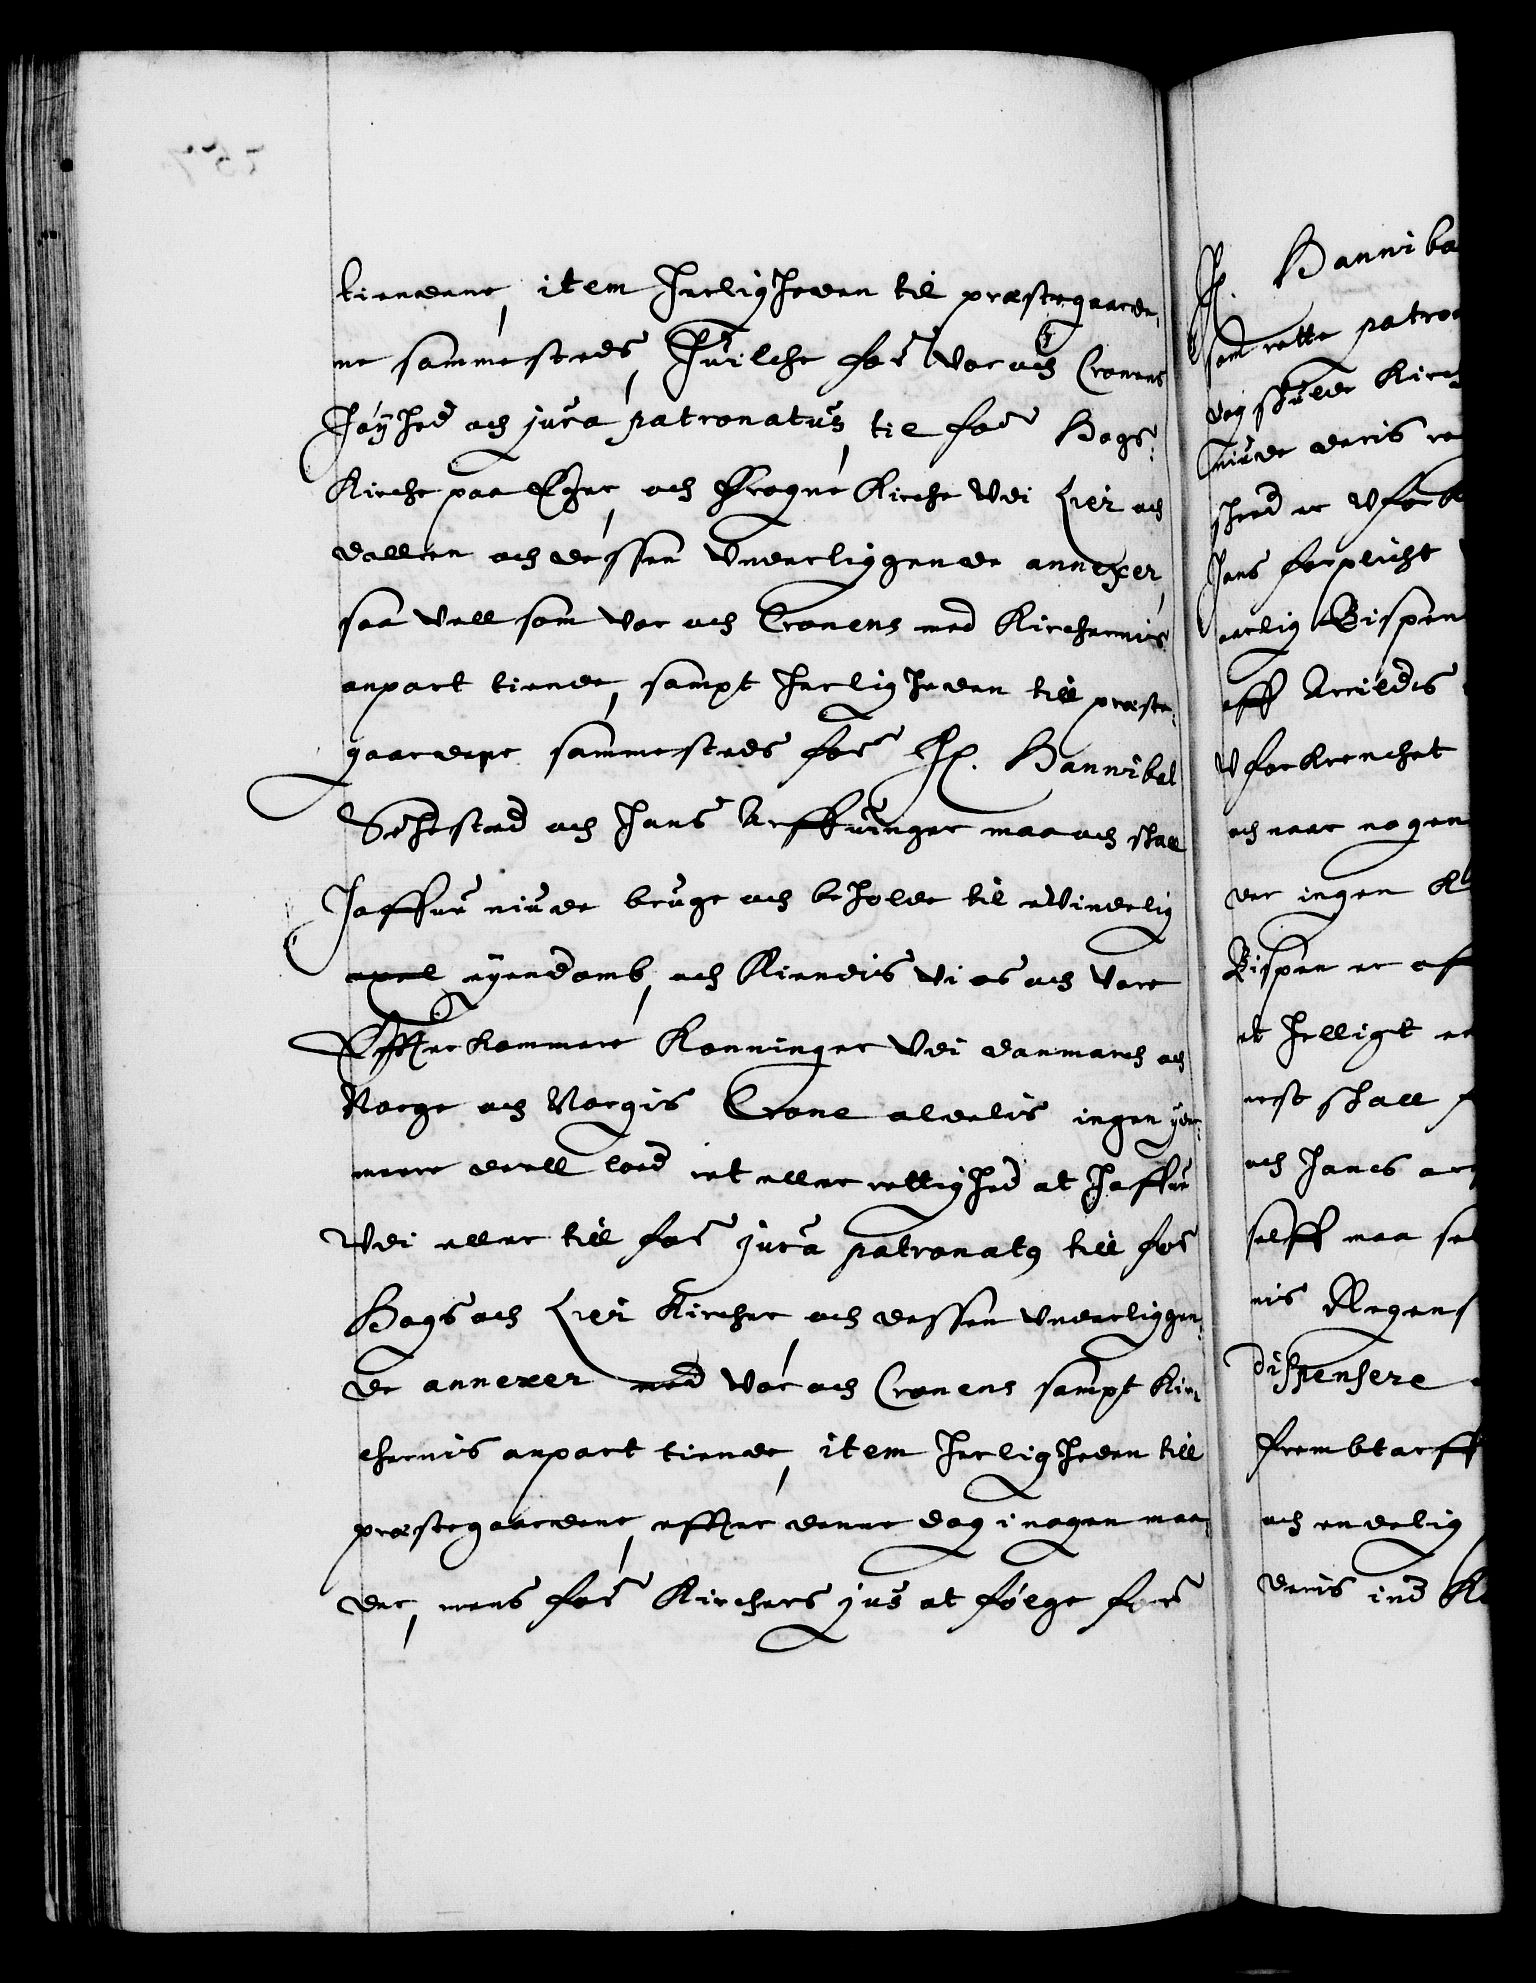 tienderne, item herligheden til præstegaarde,
ne sammesteds, huilche for.ne vor och Cronens
høyhed och jura patronatus, til for.ne Hags
Kirche paa Eger, och Frogne Kirche vdi Lier och
dallen och dessen vnderliggende annexer,
saa vell som vor och Cronens med Kirchernis
anpart tiende, sampt herligheden till præste,
gaardene sammesteds for.ne Hr. Hannibal
Sehested och hans Arffuinger maa och shall
haffue niude bruge och beholde til evindelig
eyendomb, och Kiendis vi os och vore
Effterkommere Konninger vdi danmarch och
Norge och Norgis Crone aldelis ingen yder,
meere deell lod ret eller rettighed at haffue
vdi eller till for.ne jura patronatus till for.ne
Hags och Lier Kircher, och dessen vnderliggen,
de annexer med vor och Cronens sampt Kir,
chernis anpart tiende, item herligheden till
præstegaardene, effter denne dag i nogen maa,
der, mens for.ne Kirchers jus at følge for.ne
Hr. Hanniba
som rette patro
dog shulde Kirc
niude deris re
sheed er vfork
hans forplicht
verlig Bispen
aff Arrildis
vforkrenchet
och naar nogen
der ingen K
Bispen er aff
et helliget
nest shall
och hans ar
selff maa sel
nis Regens
dispensere
frembtarff
och endelig
deris ind K